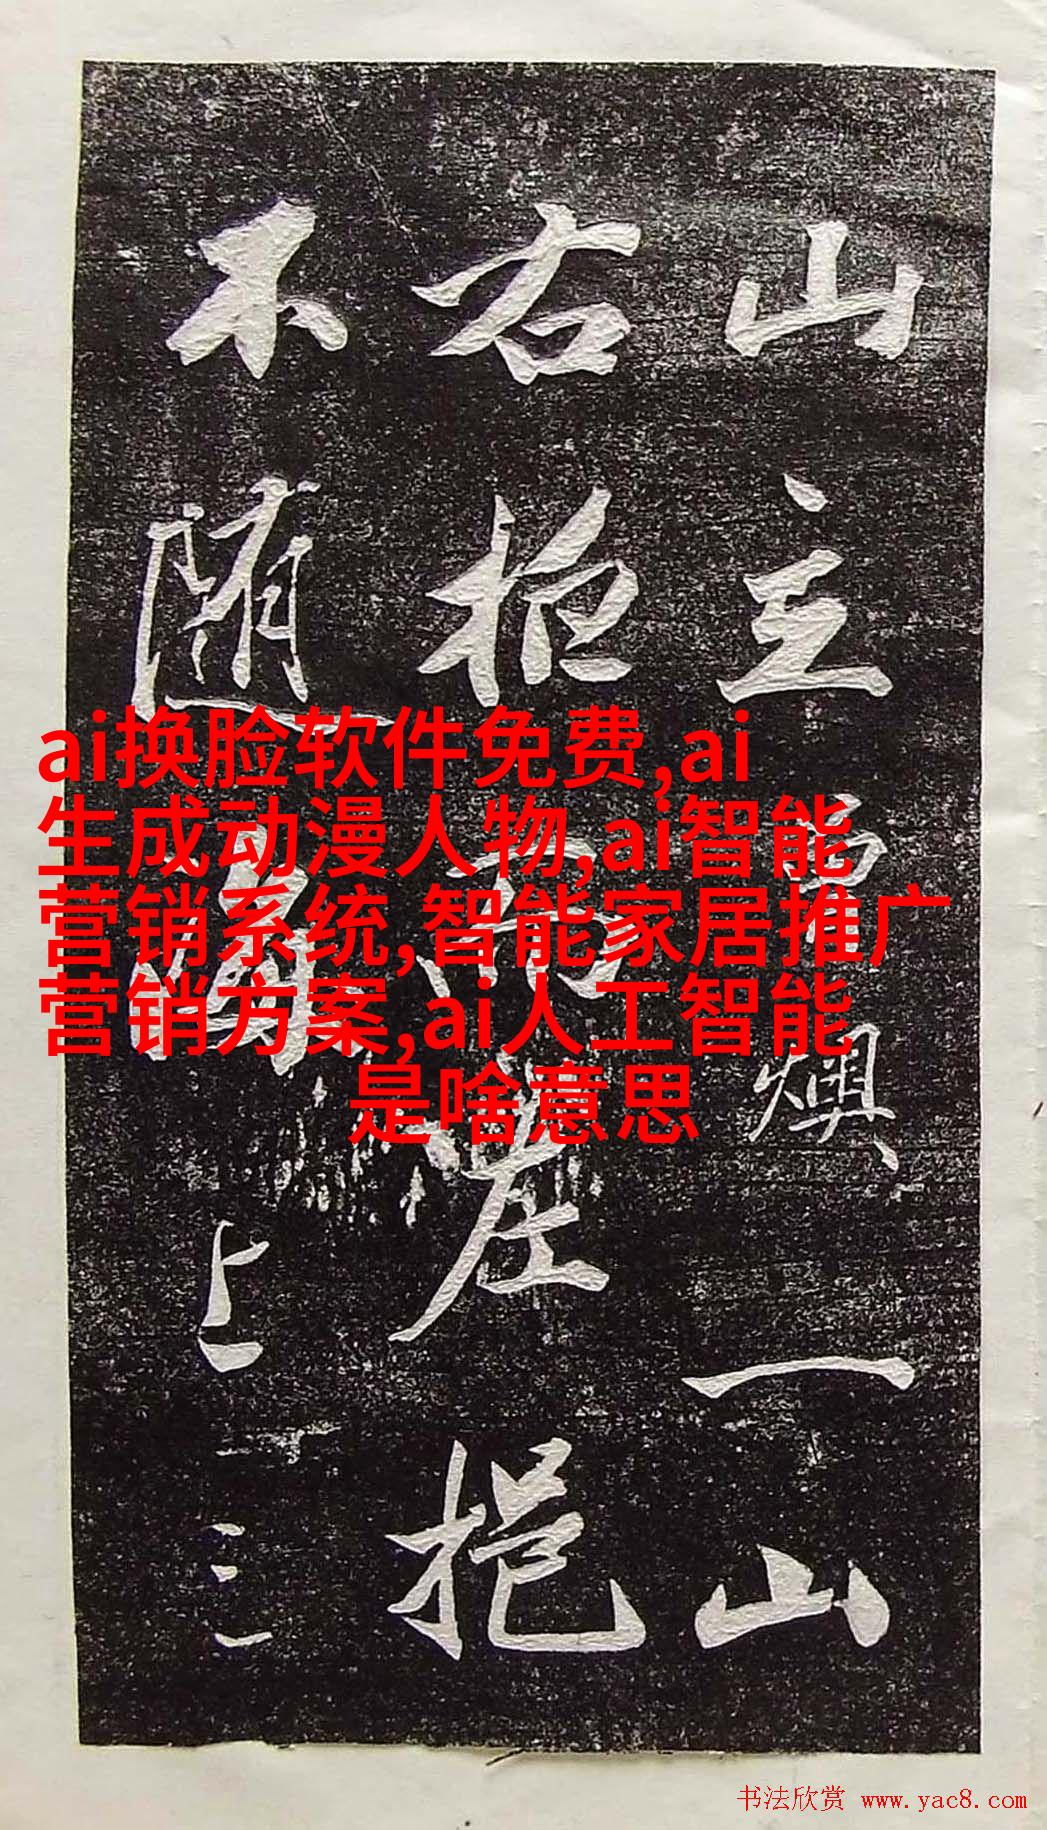 山主燠一山
右挹
不随上
ai换脸软件免费,ai
生成动漫人物,ai智能
营销系统,智能家居推广
营销方案,ai人工智能
是啥意思
书法欣赏 www.yac8.com